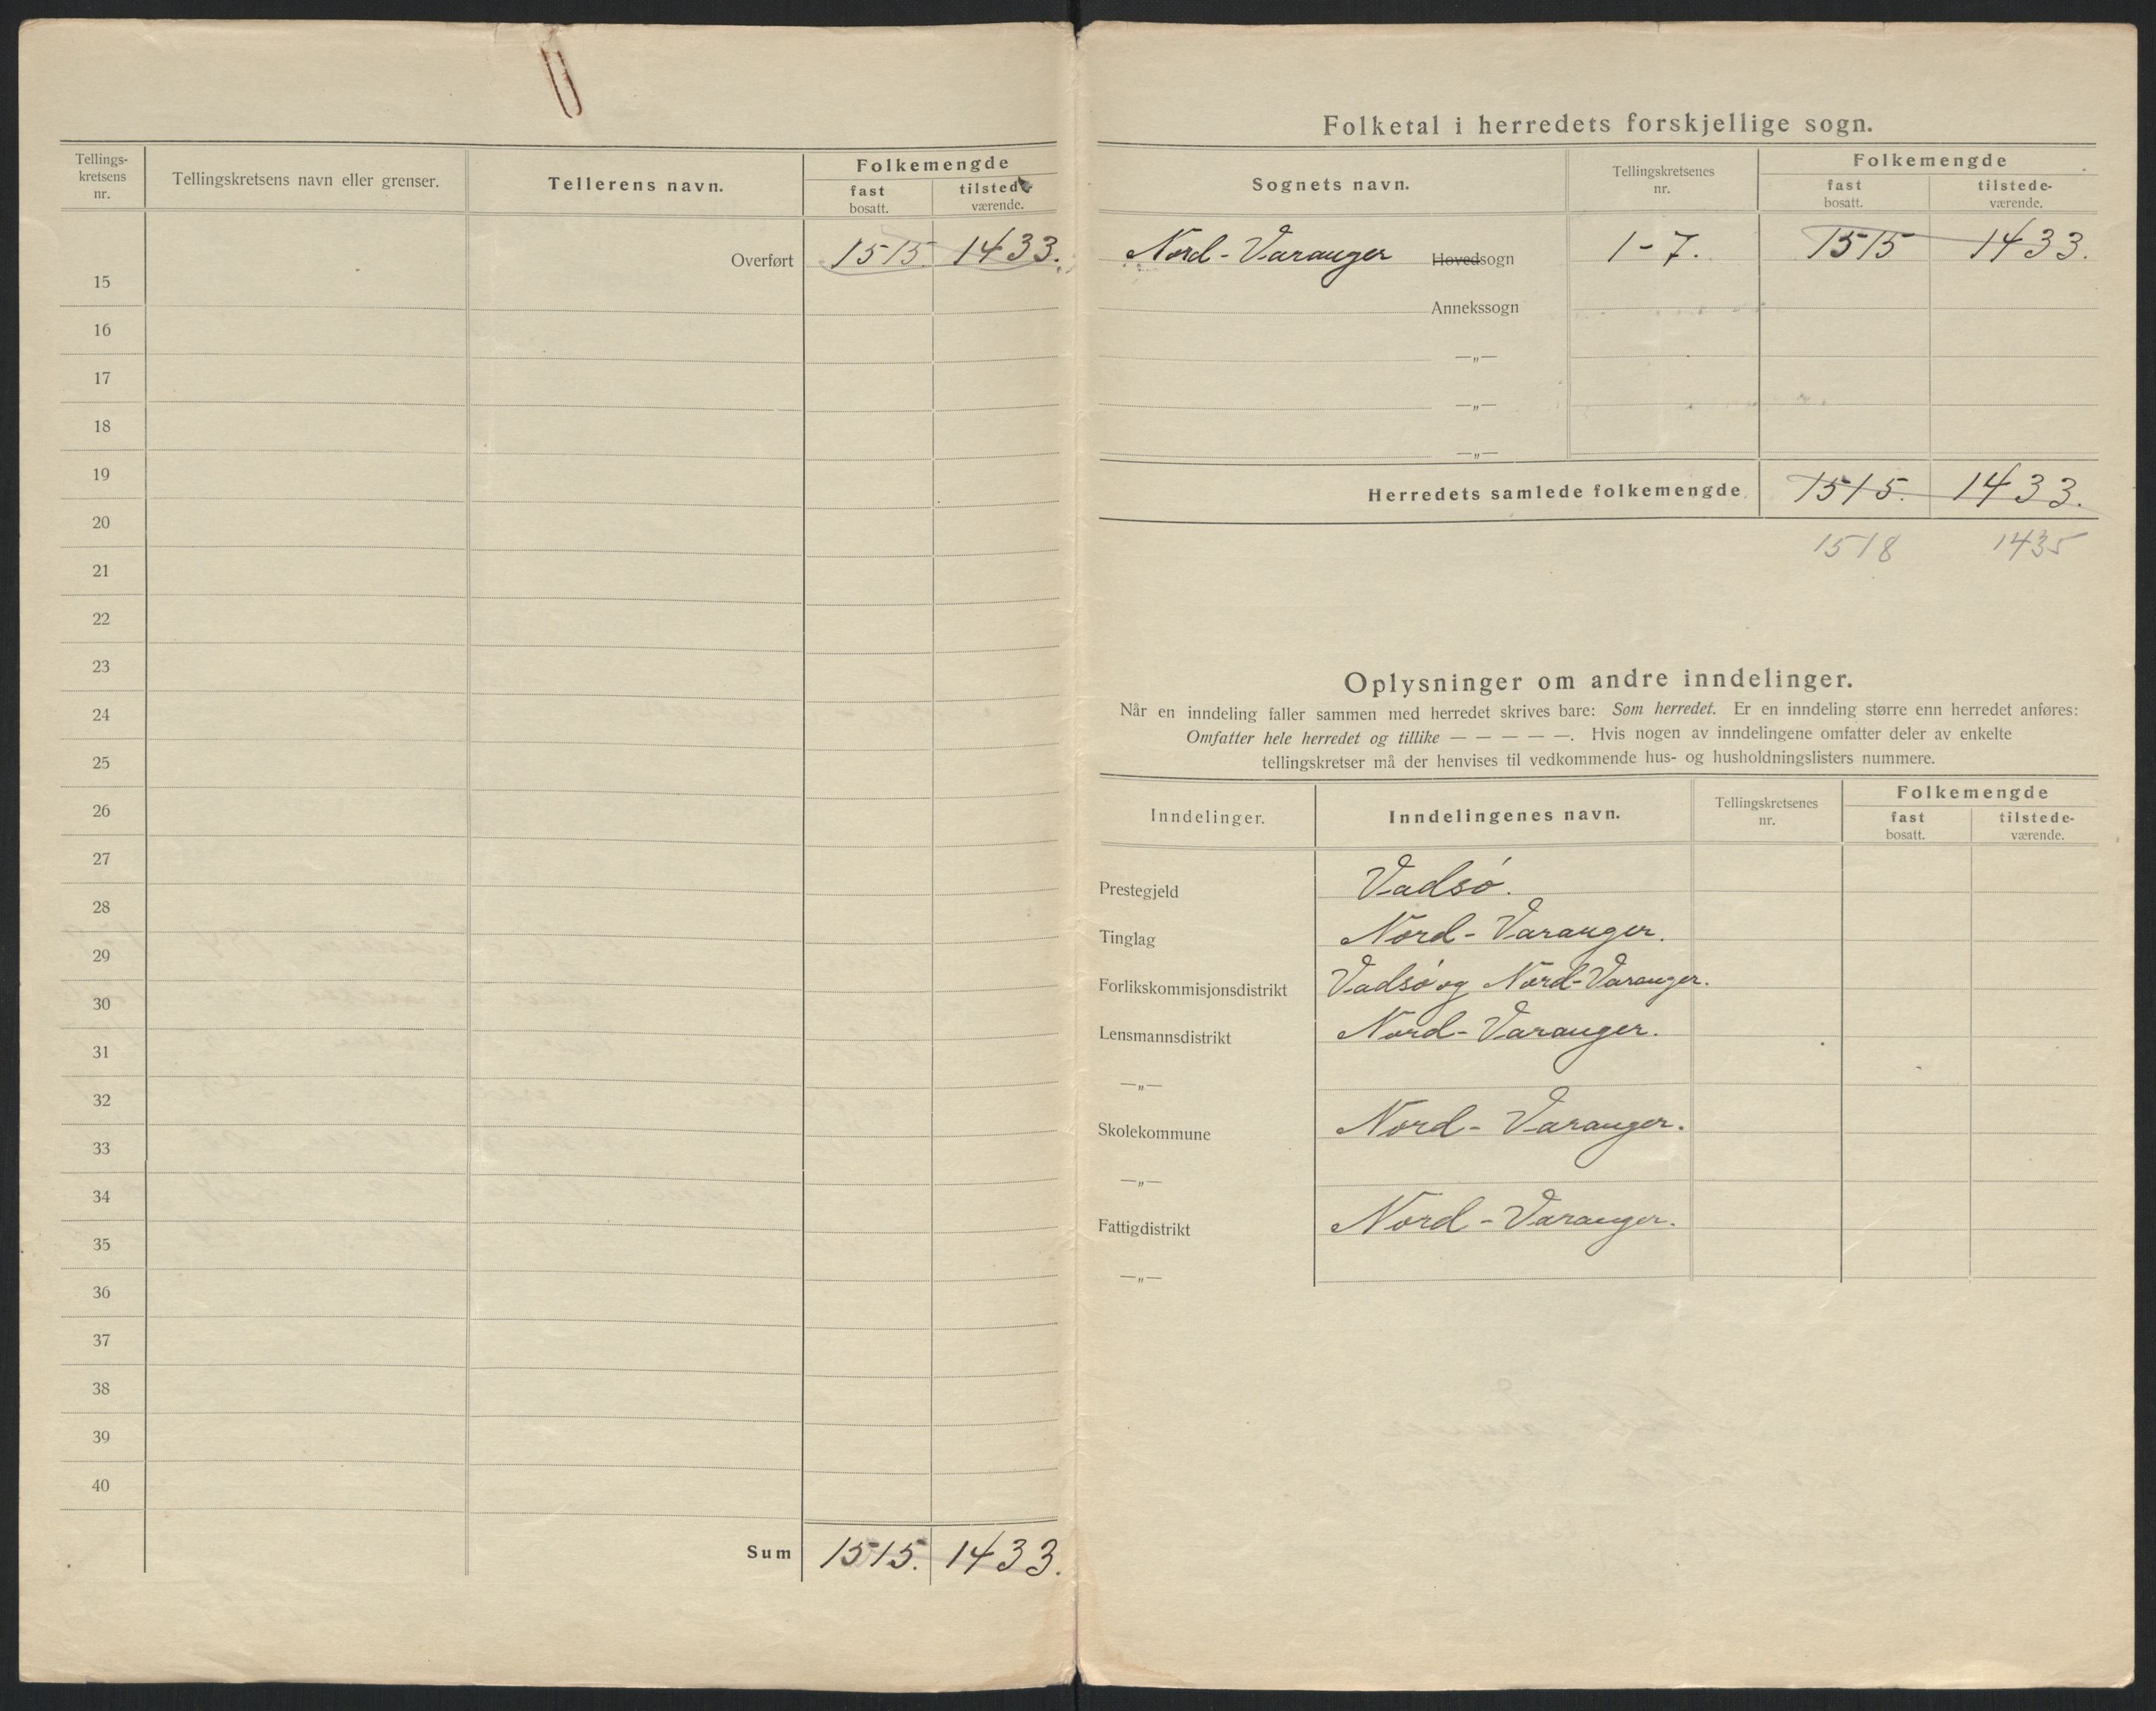 Tellings-
kretsens
nr.
Tellingskretsens navn eller grenser.
Tellerens navn.
Folkemengde
fast
bosatt.
tilstede-
værende.
Overført 1515. 1433.
15
16
17
18
19
20
21
22
23
24
25
26
27
28
29
30
31
32
33
34
35
36
37
38
39
40
Sum 1515. 1433.
Folketal i herredets forskjellige sogn.
Sognets navn.
Tellingskretsenes
nr.
Folkemengde
fast
bosatt.
tilstede-
værende.
Nord-Varanger Hovedsogn 1-7. 1515 1433.
Annekssogn
—„—
—„—
—„—
Herredets samlede folkemengde 1515. 1433.
1518 1435
Oplysninger om andre inndelinger.
Når en inndeling faller sammen med herredet skrives bare: Som herredet. Er en inndeling større enn herredet anføres:
Omfatter hele herredet og tillike — — — — —. Hvis nogen av inndelingene omfatter deler av enkelte
tellingskretser må der henvises til vedkommende hus- og husholdningslisters nummere.
Inndelinger.
Inndelingenes navn.
Tellingskretsenes
nr.
Folkemengde
fast
bosatt.
tilstede-
værende.
Prestegjeld Vadsø.
Tinglag Nord-Varanger.
Forlikskommisjonsdistrikt Vadsø og Nord-Varanger.
Lensmannsdistrikt Nord-Varanger.
—„—
Skolekommune Nord-Varanger.
—„—
Fattigdistrikt Nord-Varanger.
—„—